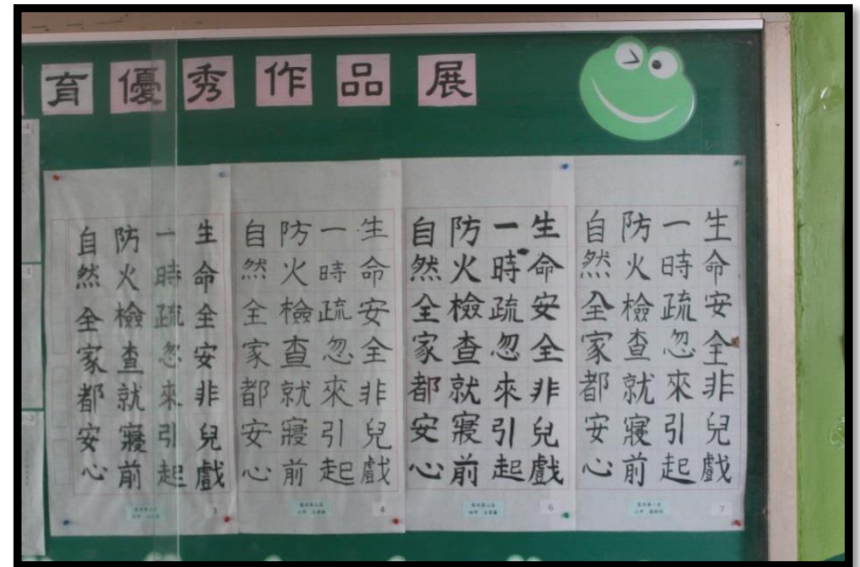 育優秀作品展
生命全安非兒戲
一時疏忽來引起
防火檢查就寢前
自然全家都安心
3
生命安全非兒戲
一時疏忽來引起
防火檢查就寢前
自然全家都安心
4
生命安全非兒戲
一時疏忽來引起
防火檢查就寢前
自然全家都安心
6
生命安全非兒戲
一時疏忽來引起
防火檢查就寢前
自然全家都安心
7